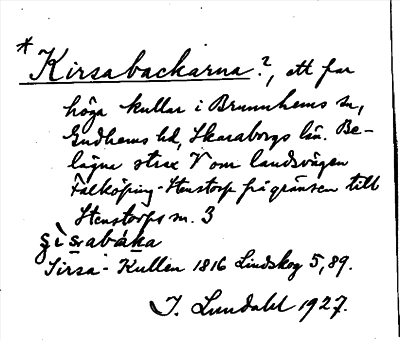 * Kirsabackarna?, ett par
höga kullar i Brunnhems sn,
Gudhems hd, Skaraborgs län. Be-
lägna strax V om landsvägen
Falköping-Stenstorp på gränsen till
Stenstorps sn. 3
Sirsa-Kullen 1816 Lindskog 5, 89.
J. Lundahl 1927.